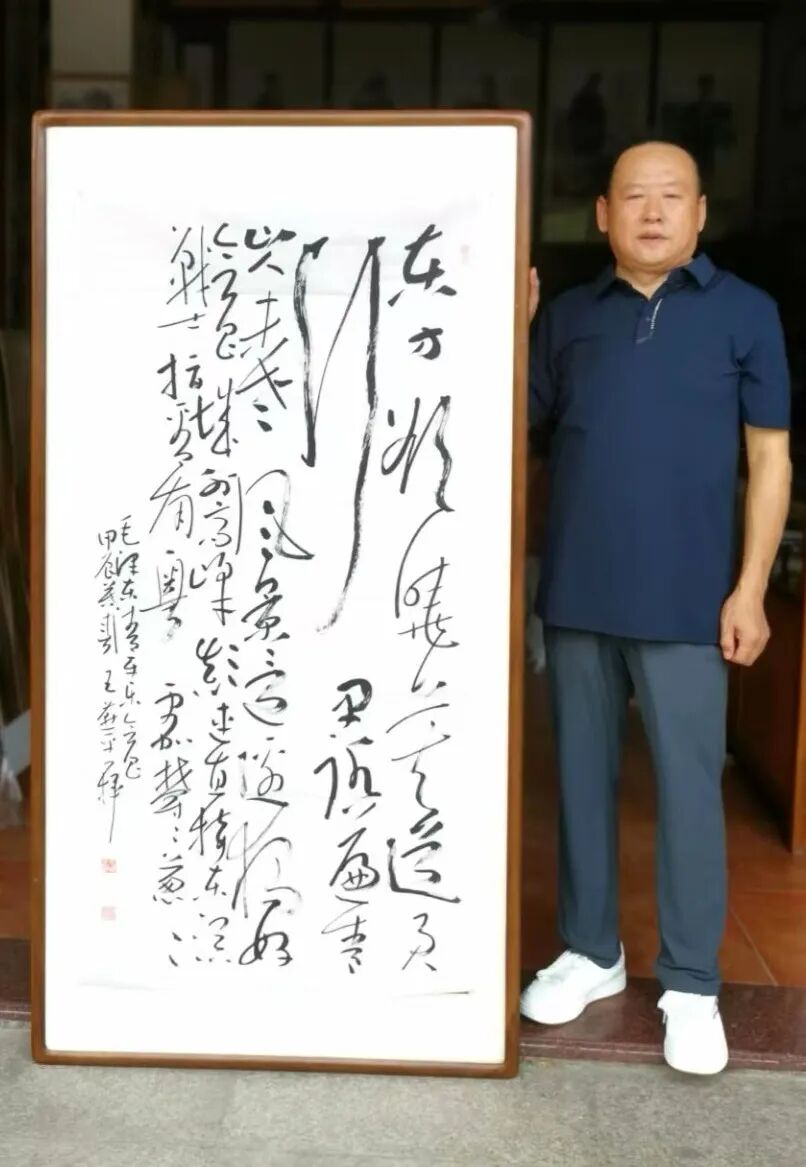 东方欲晓莫道君
行早踏遍青
山人未老风景这边独好
会昌城外高峰颠连直接东溟
战士指看南粤更加郁郁葱葱
毛泽东清平乐会昌
甲辰 王